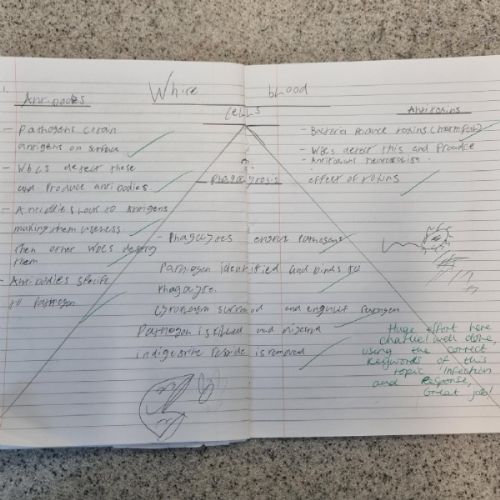 White blood
Cells
Antibodies
- Pathogens contain
antigens on surface
- WbCs detect these
and produce antibodies
- Antibodies lock to antigens
making them useless
then other WBCs destroy
them
- Antibodies specific
to Pathogen
Phagocytosis
- Phagocytes engulf pathogens
Pathogen identified and binds to
Phagocyte.
Cytoplasm surround and engulf Pathogen
Pathogen is killed and
indigestible residue is removed
Antitoxins
- Bacteria Produce toxins (harmful)
- WBCs detect this and Produce
- Antitoxins neutralise
effect of toxins
Huge effort here
well done,
using the correct
keywords of this
topic infection
and Response,
Great job!